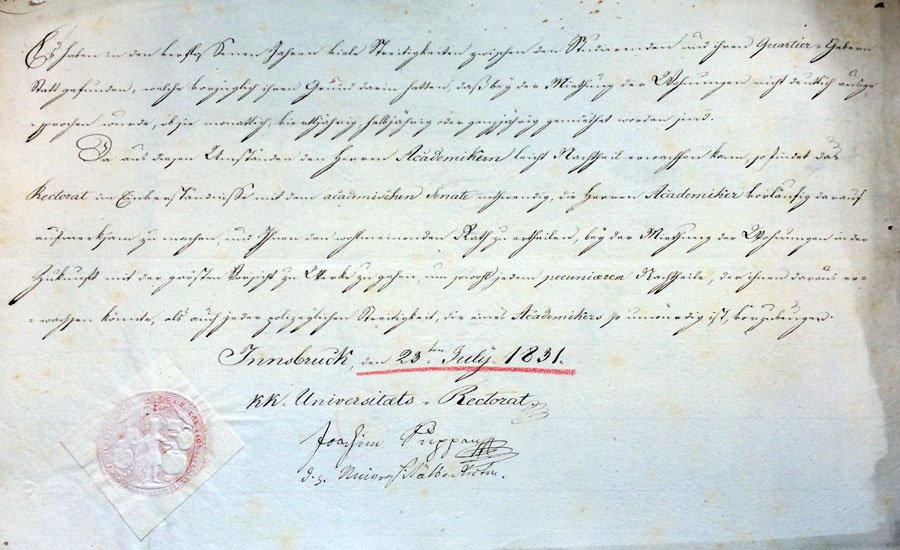 Es haben in den verflossenen Jahren viele Streitigkeiten zwischen den Studierenden und ihren Quartier-Gebern
Statt gefunden, welche vorzüglich ihren Grund darin hatten, daß bey der Miethung der Wohnungen nicht deutlich ausge-
sprochen wurde, ob sie monatlich, vierteljährig, halbjährig oder ganzjährig gemiethet worden sind.
Da aus diesen Umständen den Herren Academikern leicht Nachtheil erwachsen kann, so findet das
Rectorat im Einverständnisse mit dem academischen Senate nothwendig, die Herren Academiker vorläufig darauf
aufmerksam zu machen, und Ihnen den wohlmeinenden Rath zu ertheilen, bey der Miethung der Wohnungen in der
Zukunft mit der größten Vorsicht zu Werke zu gehen, um sowohl jedem pecuniären Nachtheile, der ihnen daraus er-
wachsen könnte, als auch jeder polizeylichen Streitigkeit, die eines Academikers so unwürdig ist, vorzubeugen.
Innsbruck, den 23ten July 1831.
KK. Universitäts-Rectorat
Joachim Suppan
d. z.